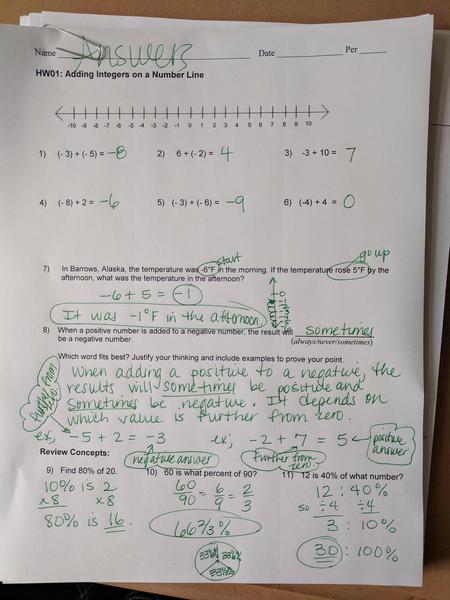 Name Answers Date Per
HW01: Adding Integers on a Number Line
-10 -9 -8 -7 -6 -5 -4 -3 -2 -1 0 1 2 3 4 5 6 7 8 9 10
1) (- 3) + (- 5) = -8 2) 6 + (- 2) = 4 3) -3 + 10 = 7
4) (- 8) + 2 = -6 5) (- 3) + (- 6) = -9 6) (-4) + 4 = 0
start go up
7) In Barrows, Alaska, the temperature was -6°F in the morning. If the temperature rose 5°F by the
afternoon, what was the temperature in the afternoon?
-6 + 5 = -1
It was -1°F in the afternoon.
8) When a positive number is added to a negative number, the result will sometimes
be a negative number. (always/never/sometimes)
Which word fits best? Justify your thinking and include examples to prove your point.
When adding a positive to a negative, the
results will sometimes be positive and
sometimes be negative. It depends on
which value is further from zero.
further from zero
ex; -5 + 2 = -3 ex; -2 + 7 = 5 positive answer
negative answer further from zero
Review Concepts:
9) Find 80% of 20. 10) 60 is what percent of 90? 11) 12 is 40% of what number?
10% is 2 60/90 = 6/9 = 2/3 12 : 40%
x8 x8 so ÷4 ÷4
80% is 16. 66 2/3% 3 : 10%
30 : 100%
33⅓% 33⅓%
33⅓%